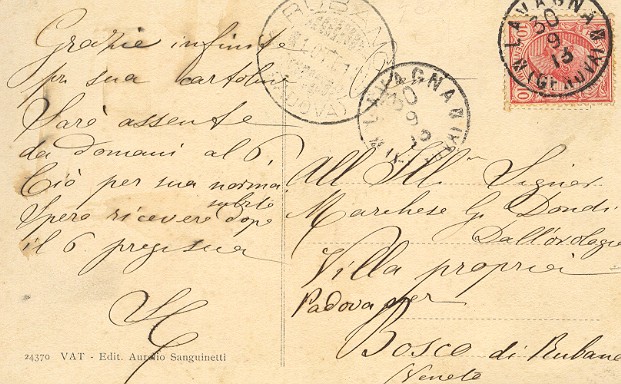 Grazie infinite
per sua cartolina
Sarò assente
da domani al 6.
Ciò per sua norma
Spero ricevere dopo
subito
il 6 pregisua
24370 VAT - Edit. Aurelio Sanguinetti
RUBANO
(PADOVA)
LAVAGNA
30
9
13
LAVAGNA
30
9
13
(GENOVA)
10
All' Ill. Signor
Marchese G. Dondi
Dall'orologio
Villa propria
Padova per
Bosco di Rubano
(Veneto